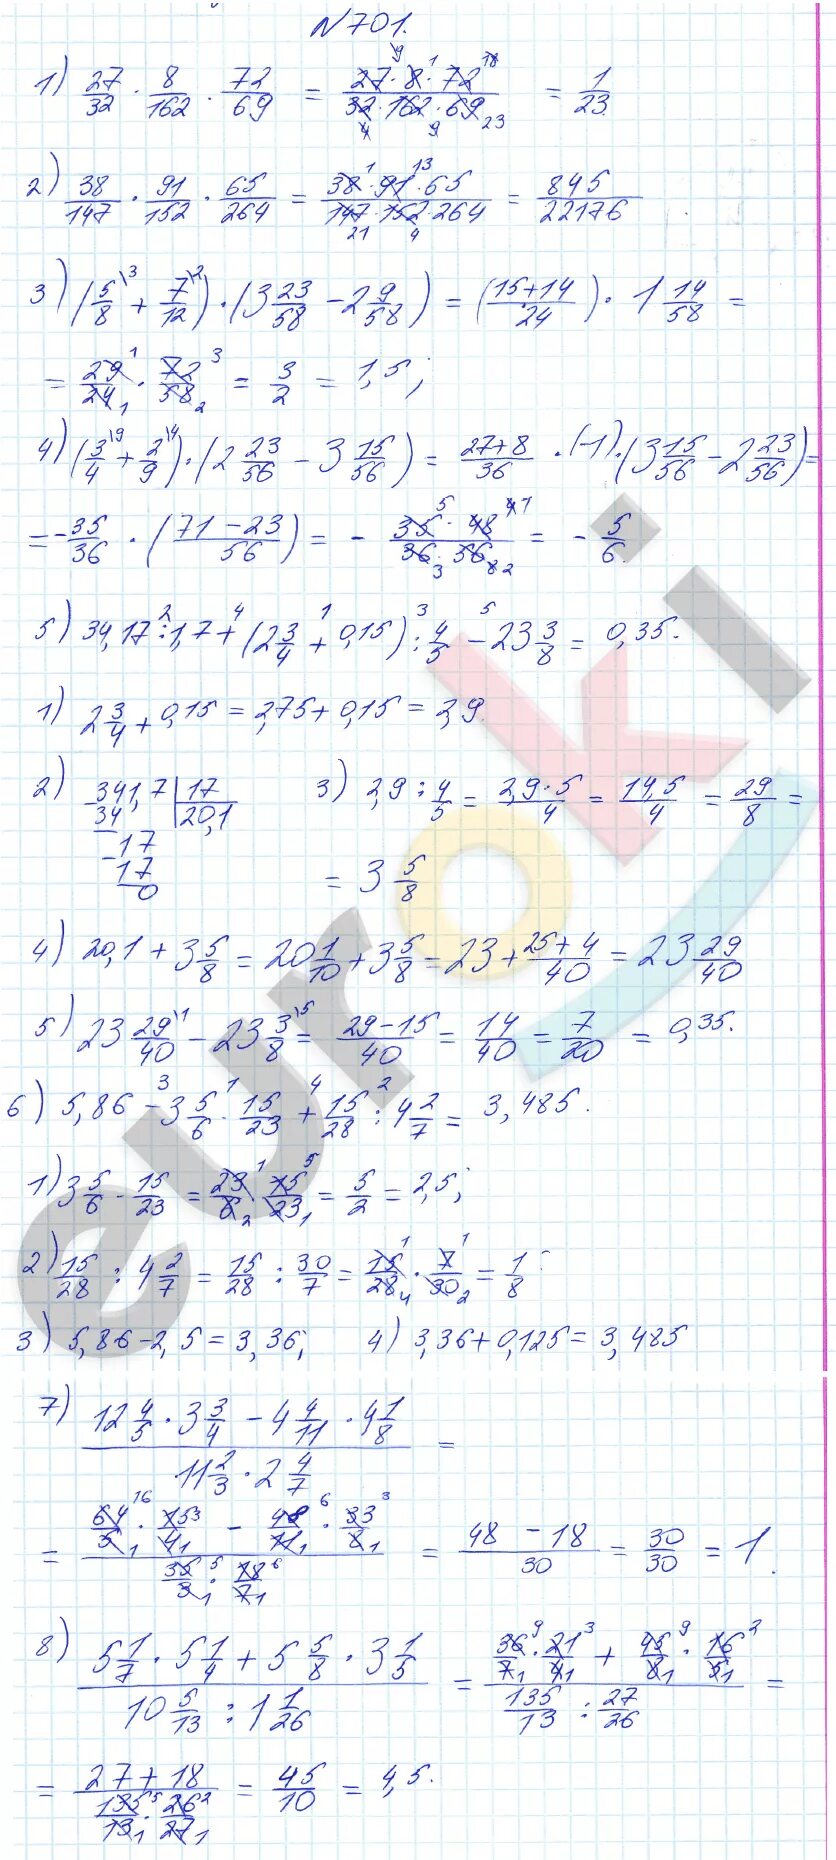 №701.
1) 27/32 · 8/162 · 72/69 = 27·8·72/32·162·69 = 1/23
2) 38/147 · 91/152 · 65/264 = 38·91·65/147·152·264 = 845/22176
3) (5/8 + 7/12) · (3 23/58 - 2 9/58) = (15+14/24) · 1 14/58 =
= 29/24 · 72/58 = 3/2 = 1,5;
4) (3/4 + 2/9) · (2 23/56 - 3 15/56) = 27+8/36 · (-1) · (3 15/56 - 2 23/56) =
= - 35/36 · (71-23/56) = - 35·48/36·56 = - 5/6.
5) 34,17 : 1,7 + (2 3/4 + 0,15) : 4/5 - 23 3/8 = 0,35.
1) 2 3/4 + 0,15 = 2,75 + 0,15 = 2,9
2) 341,7 | 17 3) 2,9 : 4/5 = 2,9·5/4 = 14,5/4 = 29/8 =
34 20,1
- 17
17
0 = 3 5/8
4) 20,1 + 3 5/8 = 20 1/10 + 3 5/8 = 23 + 25+4/40 = 23 29/40
5) 23 29/40 - 23 3/8 = 29-15/40 = 14/40 = 7/20 = 0,35.
6) 5,86 - 3 5/6 · 15/23 + 15/28 : 4 2/7 = 3,485.
1) 3 5/6 · 15/23 = 23/6 · 15/23 = 5/2 = 2,5;
2) 15/28 : 4 2/7 = 15/28 : 30/7 = 15/28 · 7/30 = 1/8;
3) 5,86 - 2,5 = 3,36; 4) 3,36 + 0,125 = 3,485
7) 12 4/5 · 3 3/4 - 4 4/11 · 4 1/8 =
11 2/3 · 2 4/7
= 64/5 · 15/4 - 48/11 · 33/8 = 48 - 18/30 = 30/30 = 1.
35/3 · 18/7
8) 5 1/7 · 5 1/4 + 5 5/8 · 3 1/5 = 36/7 · 21/4 + 45/8 · 16/5 =
10 5/13 : 1 1/26 135/13 : 27/26
= 27+18 = 45/10 = 4,5.
135/13 · 26/27
euroki